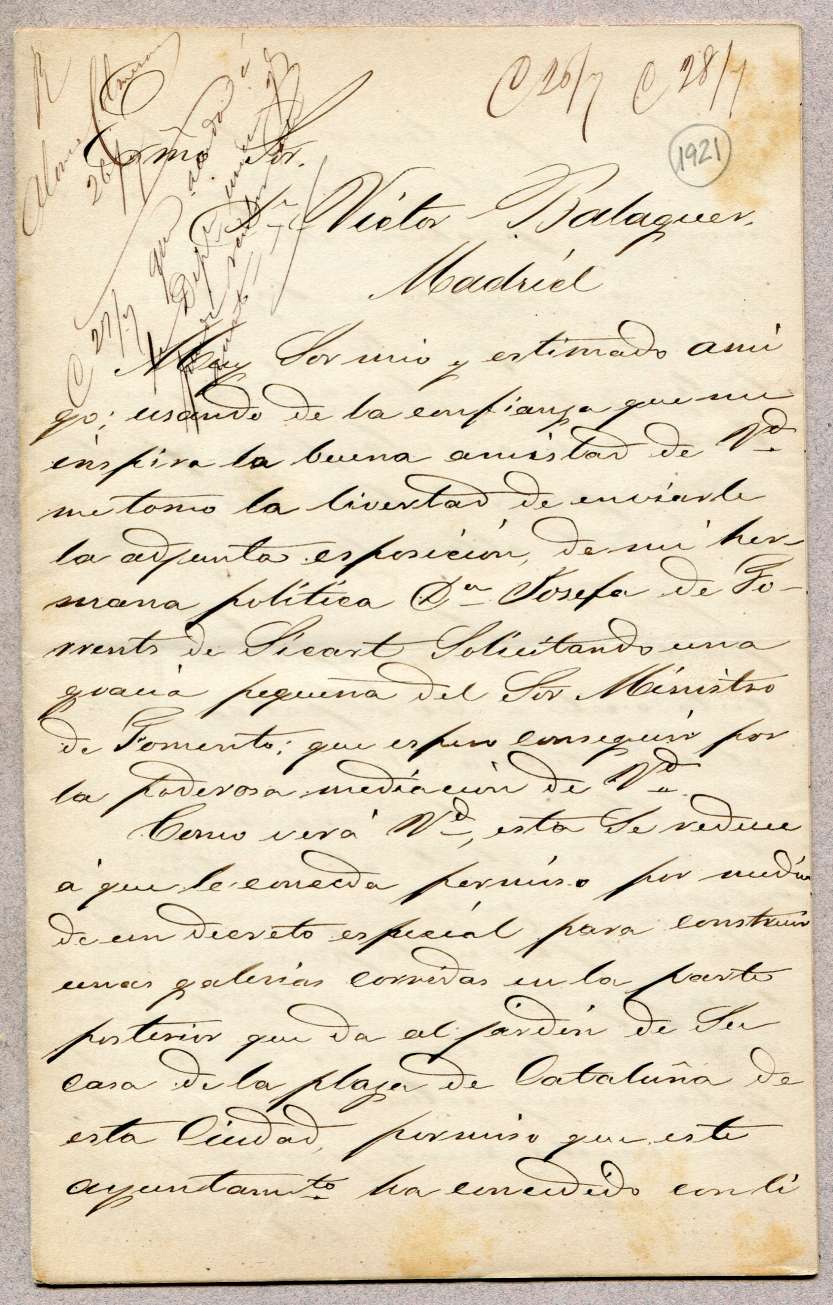 R
Alonso
26/7
C 26/7 C 28/7
1921
Exmo Sor.
Dn Víctor Balaguer.
Madrid
C 27/7 que
Muy Sor mio y estimado ami
go; usando de la confianza que me
inspira la buena amistad de Vd
me tomo la livertad de enviarle
la adjunta esposición, de mi her-
mana política Da Josefa de To-
rrents de Sicart Solicitando una
gracia pequeña del Sor Ministro
de Fomento; que espero conseguir por
la poderosa mediación de Vd
Como verá Vd, esta Se reduce
á que le conceda permiso por medio
de un decreto especial para construir
unas galerias corridas en la parte
posterior que da al jardín de Su
casa de la plaza de Cataluña de
esta Ciudad, permiso que este
ayuntamto ha concedido conti